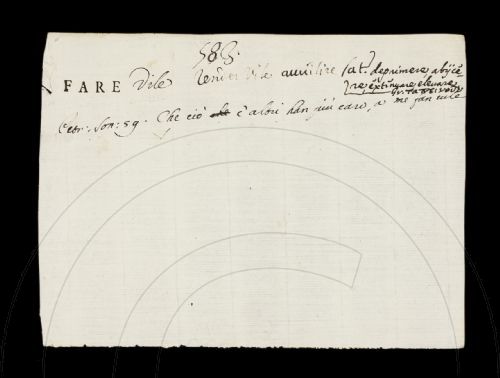 583.
FARE Vile render vile avvilire lat. deprimere abijce
re, extenuare elevare
Petr. Son: 59. Che ciò ch' è altri han più caro, a me fan vile